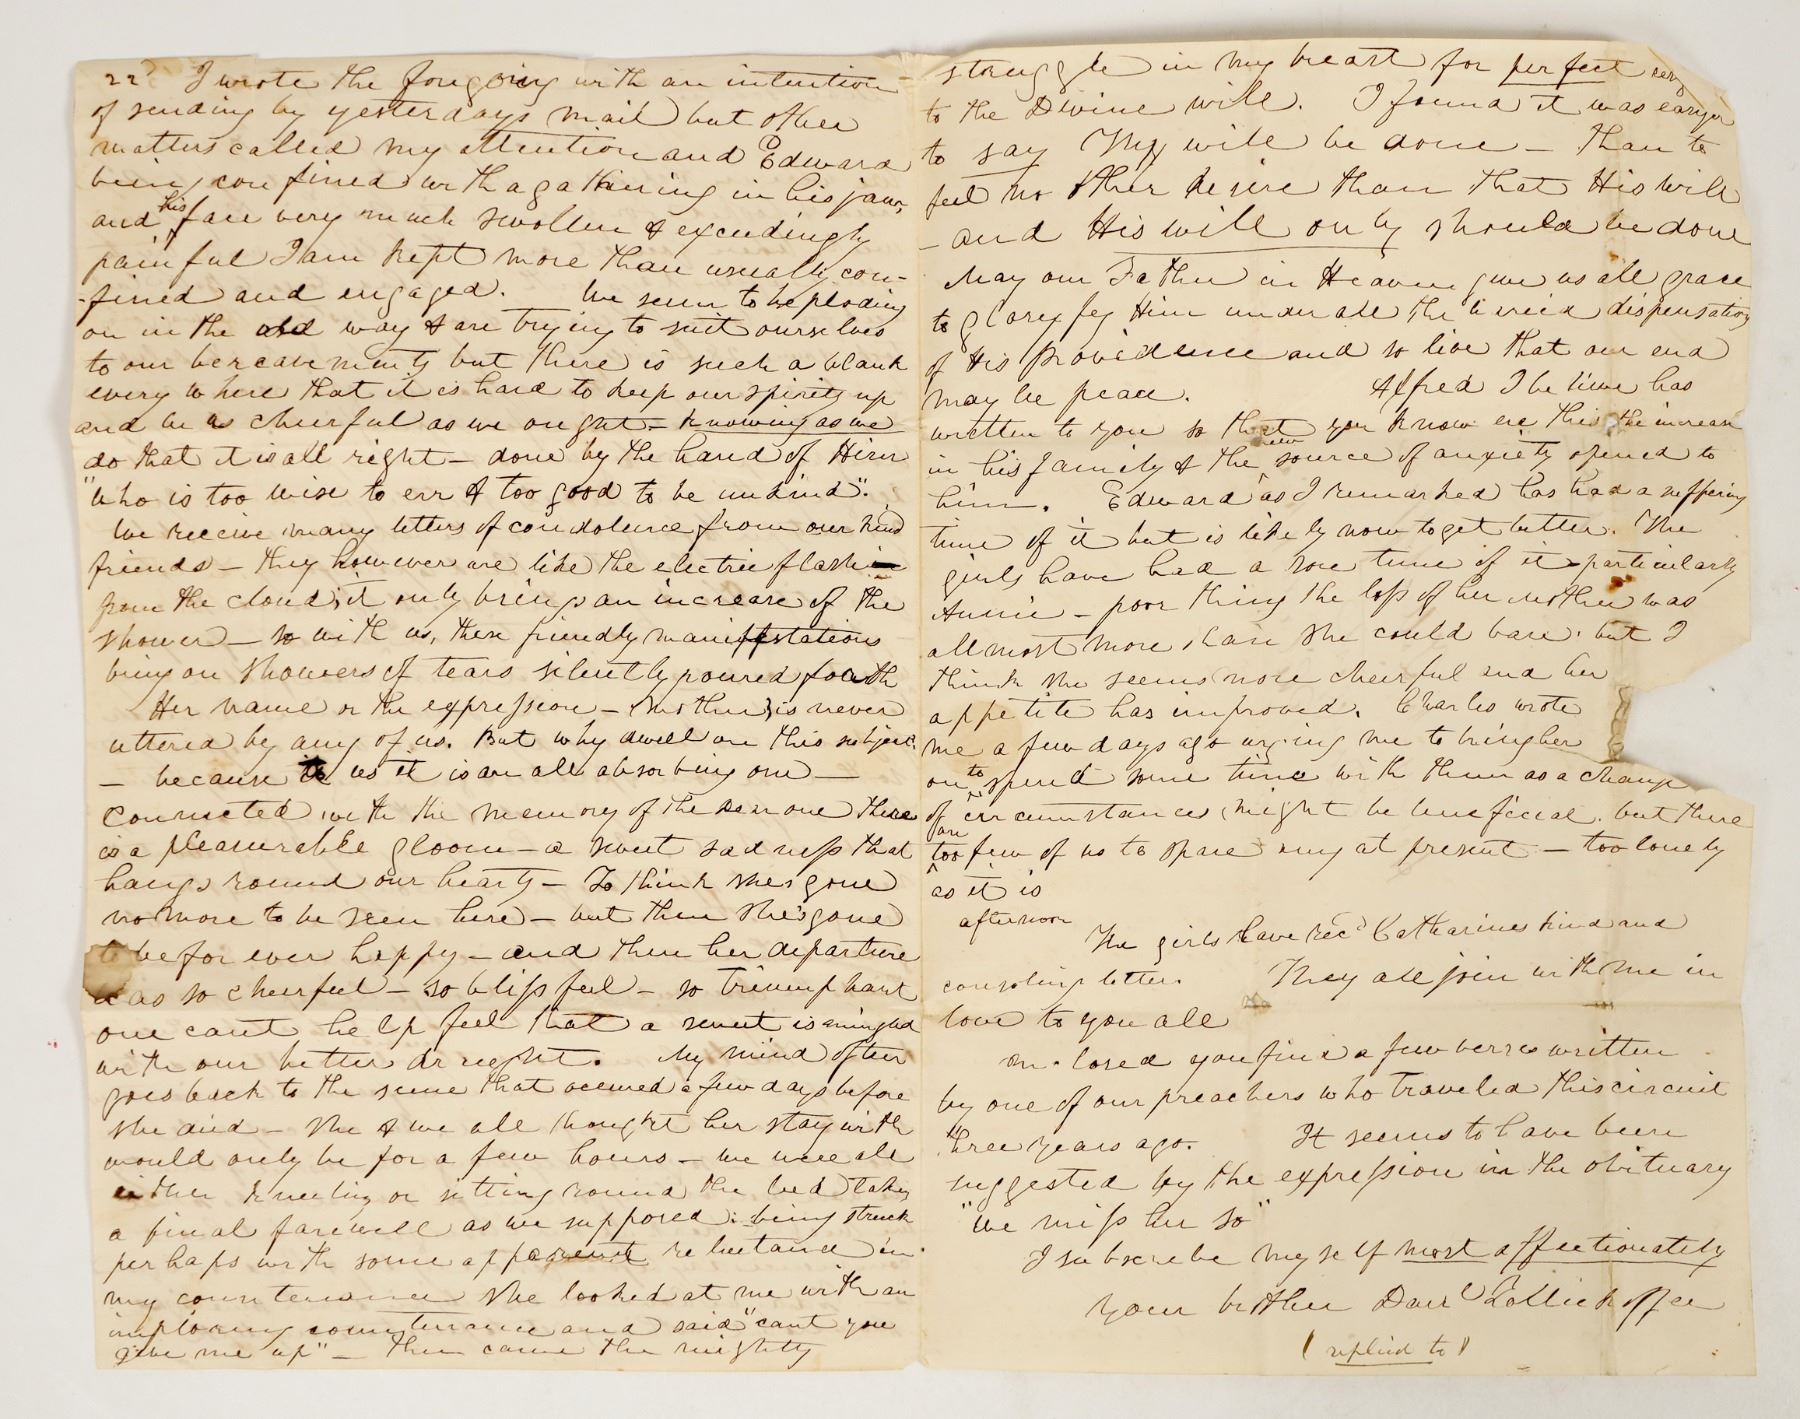 22d I wrote the foregoing with an intention
of sending by yesterdays mail but other
matters called my attention and Edward
being confined with a gathering in his jaw,
and his face very much swollen & exceedingly
painful I am kept more than usually con-
-fined and engaged. We seem to be ploding
on in the old way & are trying to suit ourselves
to our bereavements but there is such a blank
every where that it is hard to keep our spirits up
and be as cheerful as we ought - knowing as we
do that it is all right - done by the hand of Him
"who is too wise to err & too good to be unkind".
We receive many letters of condolence from our kind
friends - they however are like the electric flash
from the cloud, it only brings an increase of the
shower - so with us, these friendly manifestations
bring on showers of tears silently poured foarth
Her name or the expression - mother, is never
uttered by any of us. But why dwell on this subject
- because to us it is an all absorbing one -
Connected with the memory of the dear one there
is a pleasureable gloom - a sweet sadness that
hangs round our hearts - To think she's gone
no more to be seen here - but then she's gone
to be for ever happy - and then her departure
was so cheerful - so blissful - so triumphant
one cant help feel that a sweet is mingled
with our bitter draught. My mind often
goes back to the scene that occured a few days before
she died - She & we all thought her stay with
would only be for a few hours - we were all
either kneeling or sitting round the bed taking
a final farewell as we supposed: being struck
perhaps with some apparent reluctance in
my countenance She looked at me with an
imploring countenance and said "cant you
give me up" - then came the mighty
struggle in my breast for perfect
to the Divine will. I found it was easyer
to say Thy will be done - than to
feel no other desire than that His will
- and His will only should be done
May our Father in Heaven give us all grace
to gloreyfey Him under all the dispensations
of His providence and so live that our end
may be peace. Alfred I believe has
written to you so that you know ere this the increase
in his family & the new source of anxiety opened to
him. Edward as I remarked has had a suffering
time of it but is likely now to get better. The
girls have had a sore time of it particularly
Annie - poor thing the loss of her mother was
allmost more than she could bare. but I
think she seems more cheerful and her
appetite has improved. Charles wrote
me a few days ago urging me to bring her
on to spend some time with them as a change
of circumstances might be beneficial. but there
are too few of us to spare any at present - too lonely
as it is
afternoon
The girls have recd Catharines kind and
consoling letter. They all join with me in
love to you all
Enclosed you find a few verses written
by one of our preachers who traveled this circuit
three years ago. It seems to have been
suggested by the expression in the obituary
"we miss her so"
I subscribe myself most affectionately
Your brother Danl Zollickoffer
(replied to)